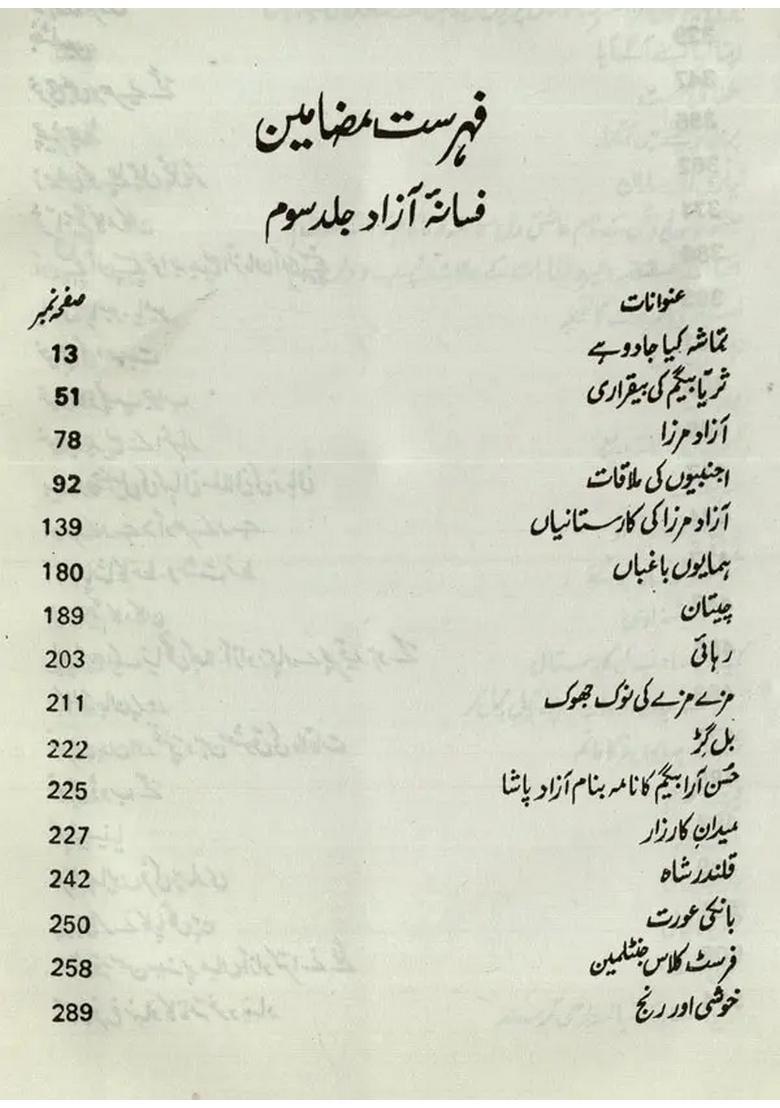 فہرست مضامین
فسانۂ آزاد جلد سوم
عنوانات صفحہ نمبر
تماشہ کیا جادو ہے 13
ثریّا بیگم کی بیقراری 51
آزاد مرزا 78
اجنبیوں کی ملاقات 92
آزاد مرزا کی کارستانیاں 139
ہمایوں باغباں 180
چیتان 189
رہائی 203
مزے مزے کی نوک جھوک 211
بل گڑ 222
حُسن آرا بیگم کا نامہ بنام آزاد پاشا 225
میدانِ کارزار 227
قلندر شاہ 242
بانکی عورت 250
فرسٹ کلاس جنٹلمین 258
خوشی اور رنج 289